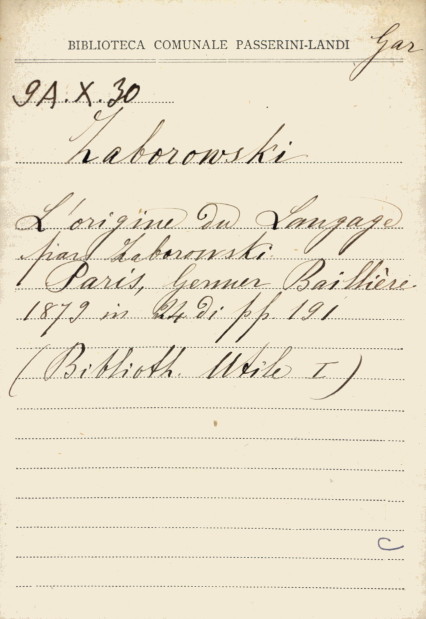 BIBLIOTECA COMUNALE PASSERINI-LANDI
Gar
9A.X.30
Zaborowski
L'origine du Langage
par Zaborowski.
Paris, Germer Baillière.
1879 in 24 di pp 191
(Biblioth. Utile I)
C